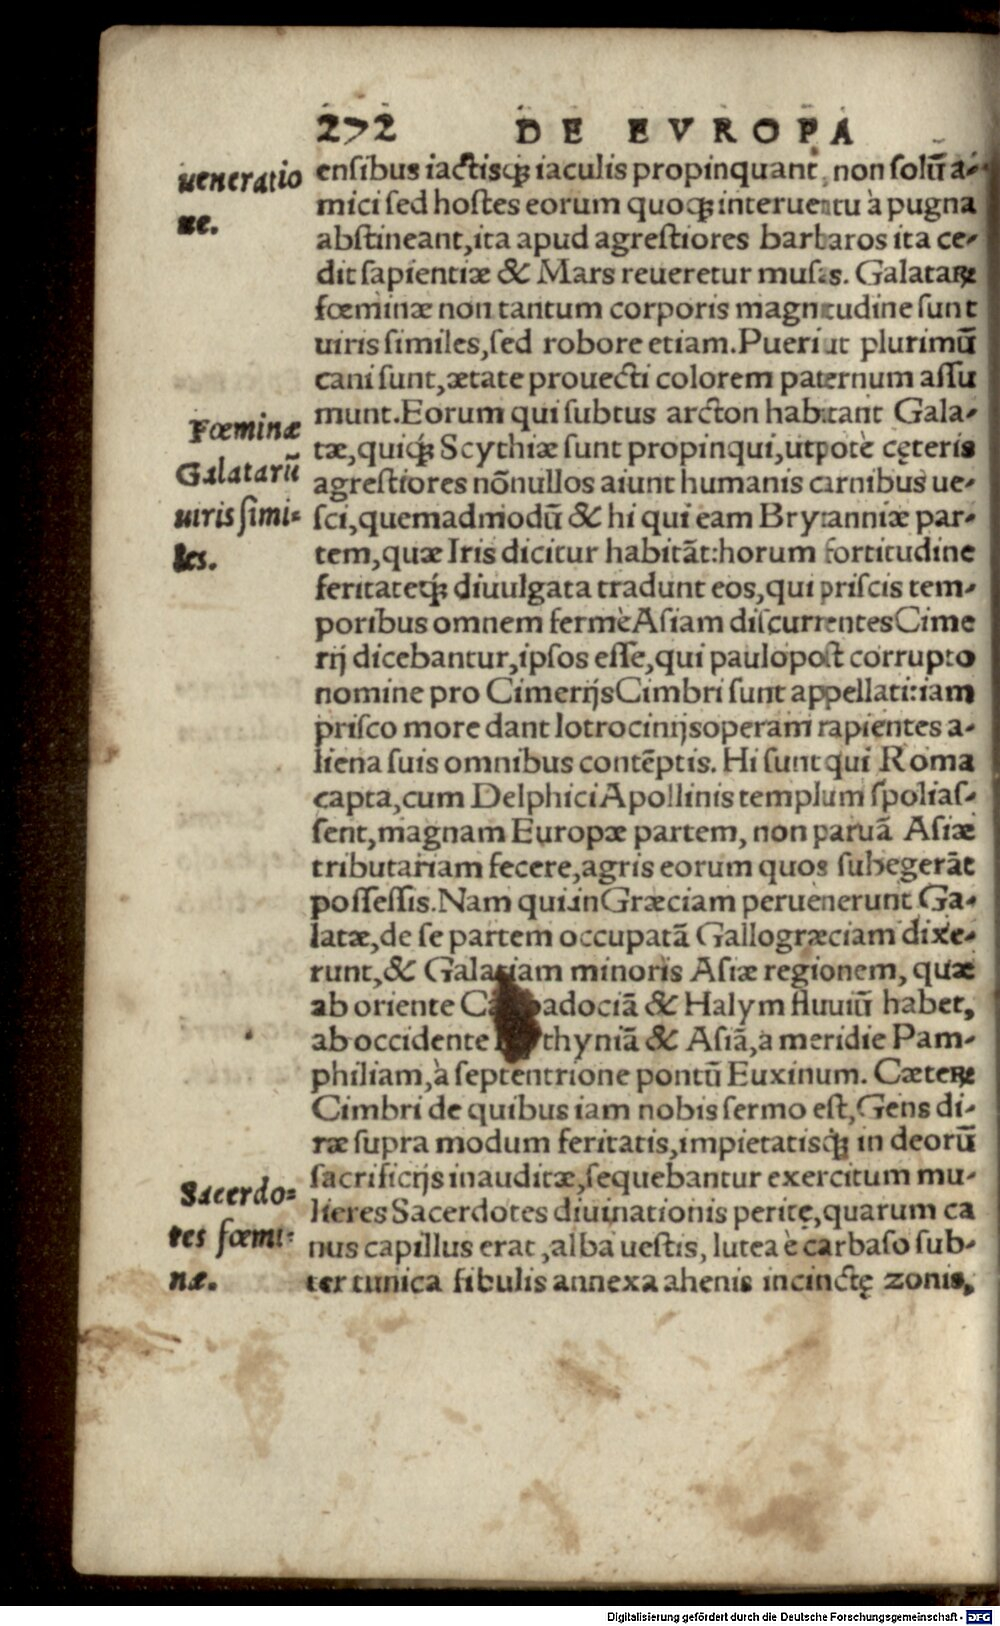 272 DE EVROPA
ueneratio
ne.
ensibus iactisq́ꝫ iaculis propinquant, non solũ a-
mici sed hostes eorum quoq́ꝫ interuentu à pugna
abstineant, ita apud agrestiores barbaros ita ce-
dit sapientiæ & Mars reueretur musas. Galatarꝝ
fœminæ non tantum corporis magnitudine sunt
uiris similes, sed robore etiam. Pueri ut plurimũ
cani sunt, ætate prouecti colorem paternum assu
munt. Eorum qui subtus arcton habitant Gala-
tæ, quiq́ꝫ Scythiæ sunt propinqui, utpotè cęteris
agrestiores nõnullos aiunt humanis carnibus ue-
sci, quemadmodũ & hi qui eam Brytanniæ par-
tem, quæ Iris dicitur habitãt: horum fortitudine
feritateq́ꝫ diuulgata tradunt eos, qui priscis tem-
poribus omnem fermè Asiam discurrentes Cime
rij dicebantur, ipsos esse, qui paulopost corrupto
nomine pro Cimerijs Cimbri sunt appellati: iam
prisco more dant lotrocinijs operam rapientes a-
liena suis omnibus contẽptis. Hi sunt qui Roma
capta, cum Delphici Apollinis templum spolias-
sent, magnam Europæ partem, non paruã Asiæ
tributariam fecere, agris eorum quos subegerãt
possessis. Nam qui in Græciam peruenerunt Ga-
latæ, de se partem occupatã Gallogræciam dixe-
runt, & Galatiam minoris Asiæ regionem, quæ
ab oriente Cappadociã & Halym fluuiũ habet,
ab occidente Bithyniã & Asiã, a meridie Pam-
philiam, à septentrione pontũ Euxinum. Cæterꝝ
Cimbri de quibus iam nobis sermo est, Gens di-
ræ supra modum feritatis, impietatisq́ꝫ in deorũ
sacrificijs inauditæ, sequebantur exercitum mu-
lieres Sacerdotes diuinationis peritę, quarum ca
nus capillus erat, alba uestis, lutea è carbaso sub-
ter tunica fibulis annexa ahenis incinctę zonis,
Fœminæ
Galatarũ
uiris simi-
les.
Sacerdo-
tes fœmi-
næ.
Digitalisierung gefördert durch die Deutsche Forschungsgemeinschaft - DFG